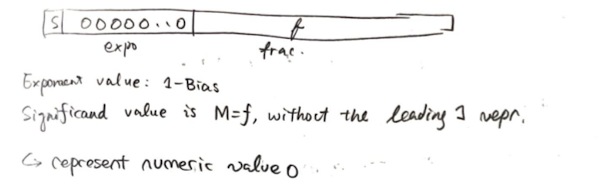 S 00000..0 f
expo frac.
Exponent value: 1-Bias
Significand value is M=f, without the leading 1 repr.
↳ represent numeric value 0